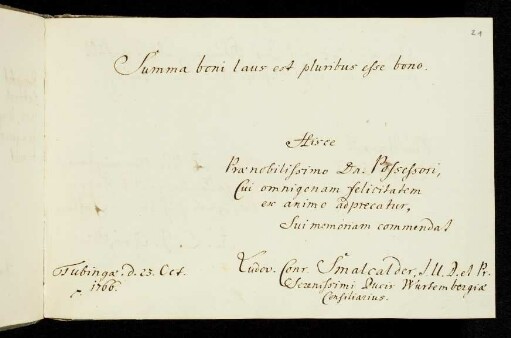 21
Summa boni laus est pluribus esse bono.
Hisce
Prænobilissimo Dn. Possessori,
Cui omnigenam felicitatem
ex animo adprecatur,
Sui memoriam commendat
Tubingæ. d. 23. Oct.
1766.
Ludov. Conr. Smalcalder, J. U. D. et Pr.
Serenissimi Ducis Würtembergiæ
Consiliarius.